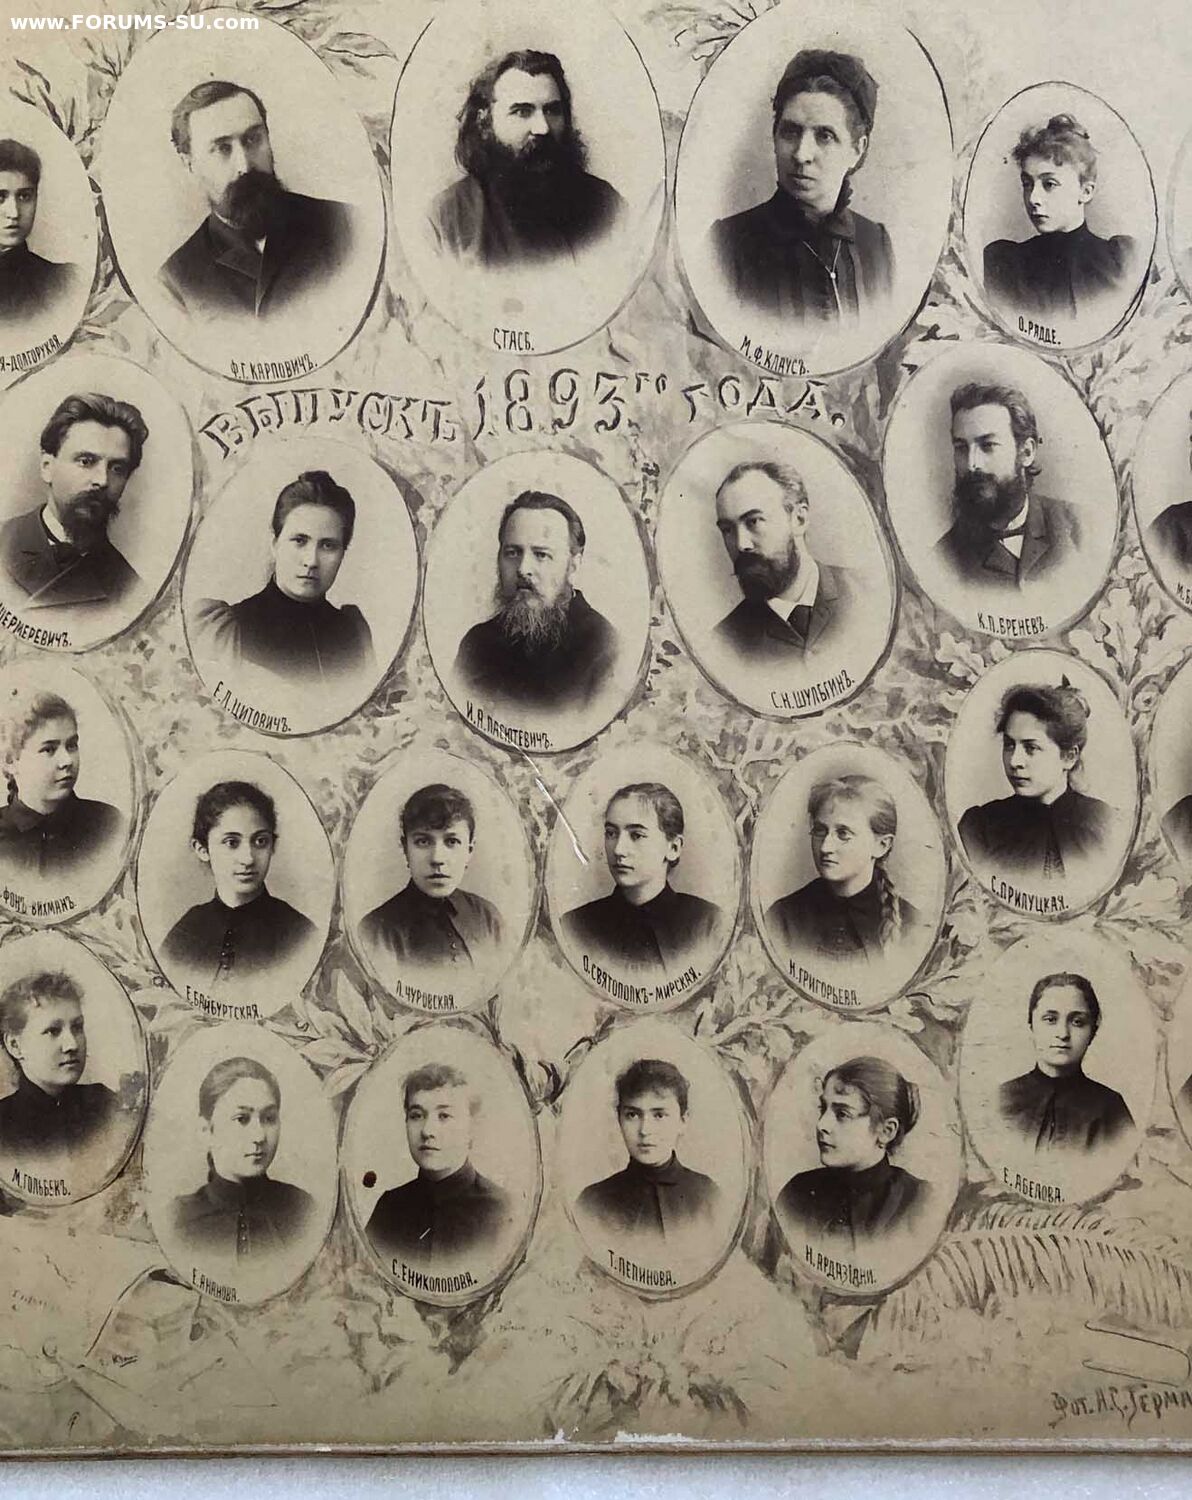 www.FORUMS-SU.com
Я-ДОЛГОРУКАЯ.
Ф.Г.КАРПОВИЧЪ.
СТАСБ.
М.Ф.КЛАУСЪ.
О.РАДДЕ.
ВЫПУСКЪ 1893ГО ГОДА.
ШЕРМЕРЕВИЧЪ.
Е.Л.ЦИТОВИЧЪ.
И.А.ПАСЮТЕВИЧЪ.
С.Н.ШУЛЬГИНЪ.
К.П.БРЕНЕВЪ.
ФОНЪ ВИХМАНЪ.
Е.БАЙБУРТСКАЯ.
Л.ЧУРОВСКАЯ.
О.СВЯТОПОЛКЪ-МИРСКАЯ.
Н.ГРИГОРЬЕВА.
С.ПРИЛУЦКАЯ.
М.ГОЛЬБЕКЪ.
Е.АНАНОВА.
С.ЕНИКОЛОПОВА.
Т.ПЕПИНОВА.
Н.АРДАЗІАНИ.
Е.АБЕЛОВА.
Фот.А.С.ГЕРМА